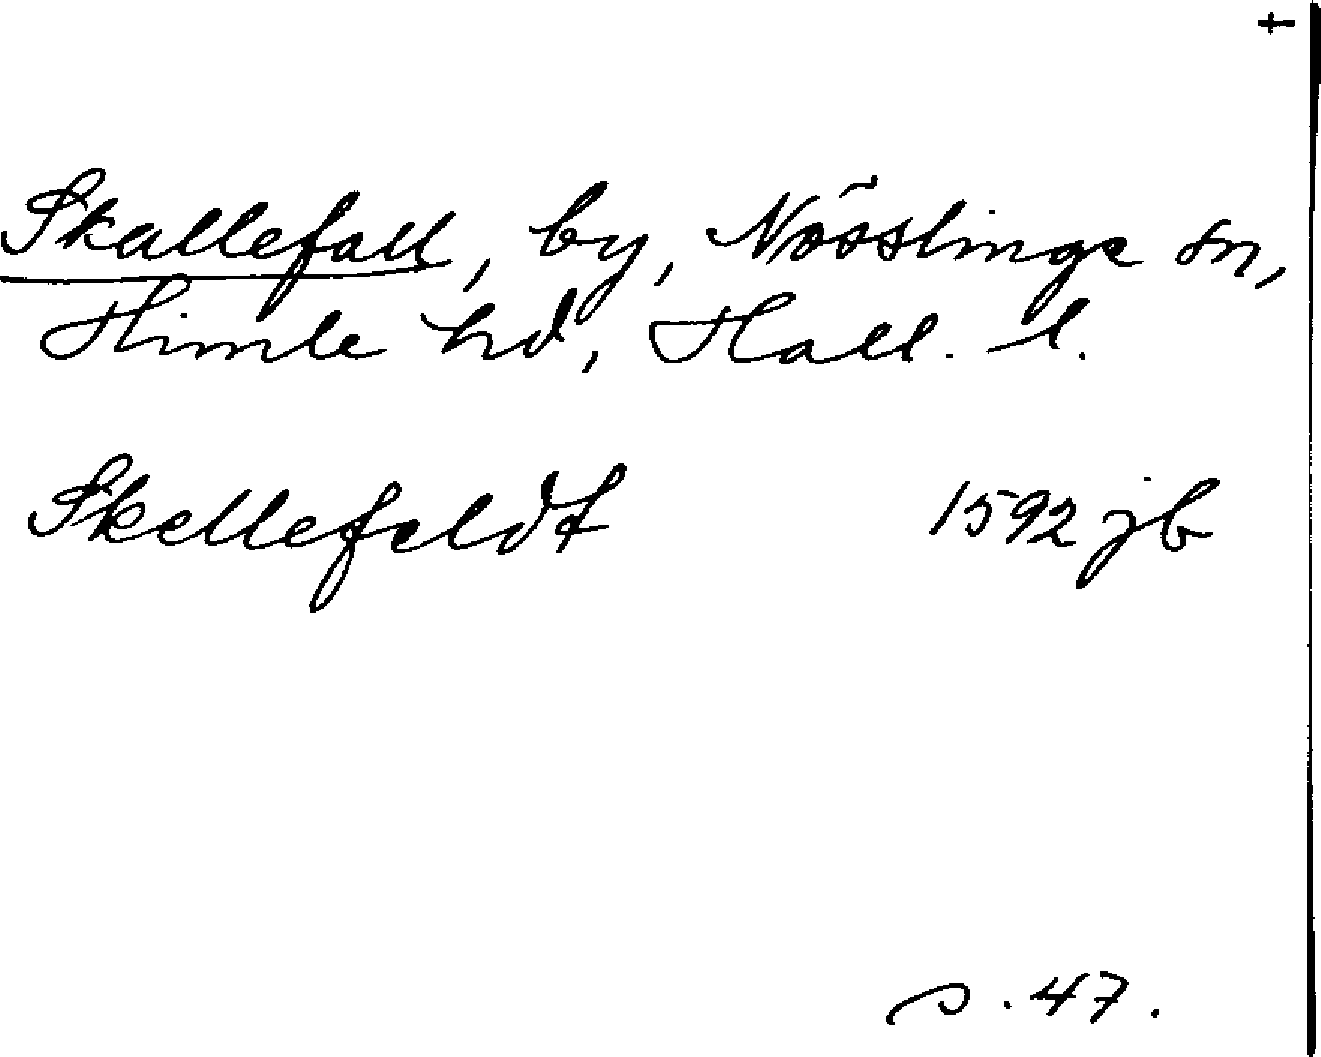 Skallefall, by, Nösslinge sn,
Himle hd, Hall. l.
Skellefeldt 1592 jb
s. 47.